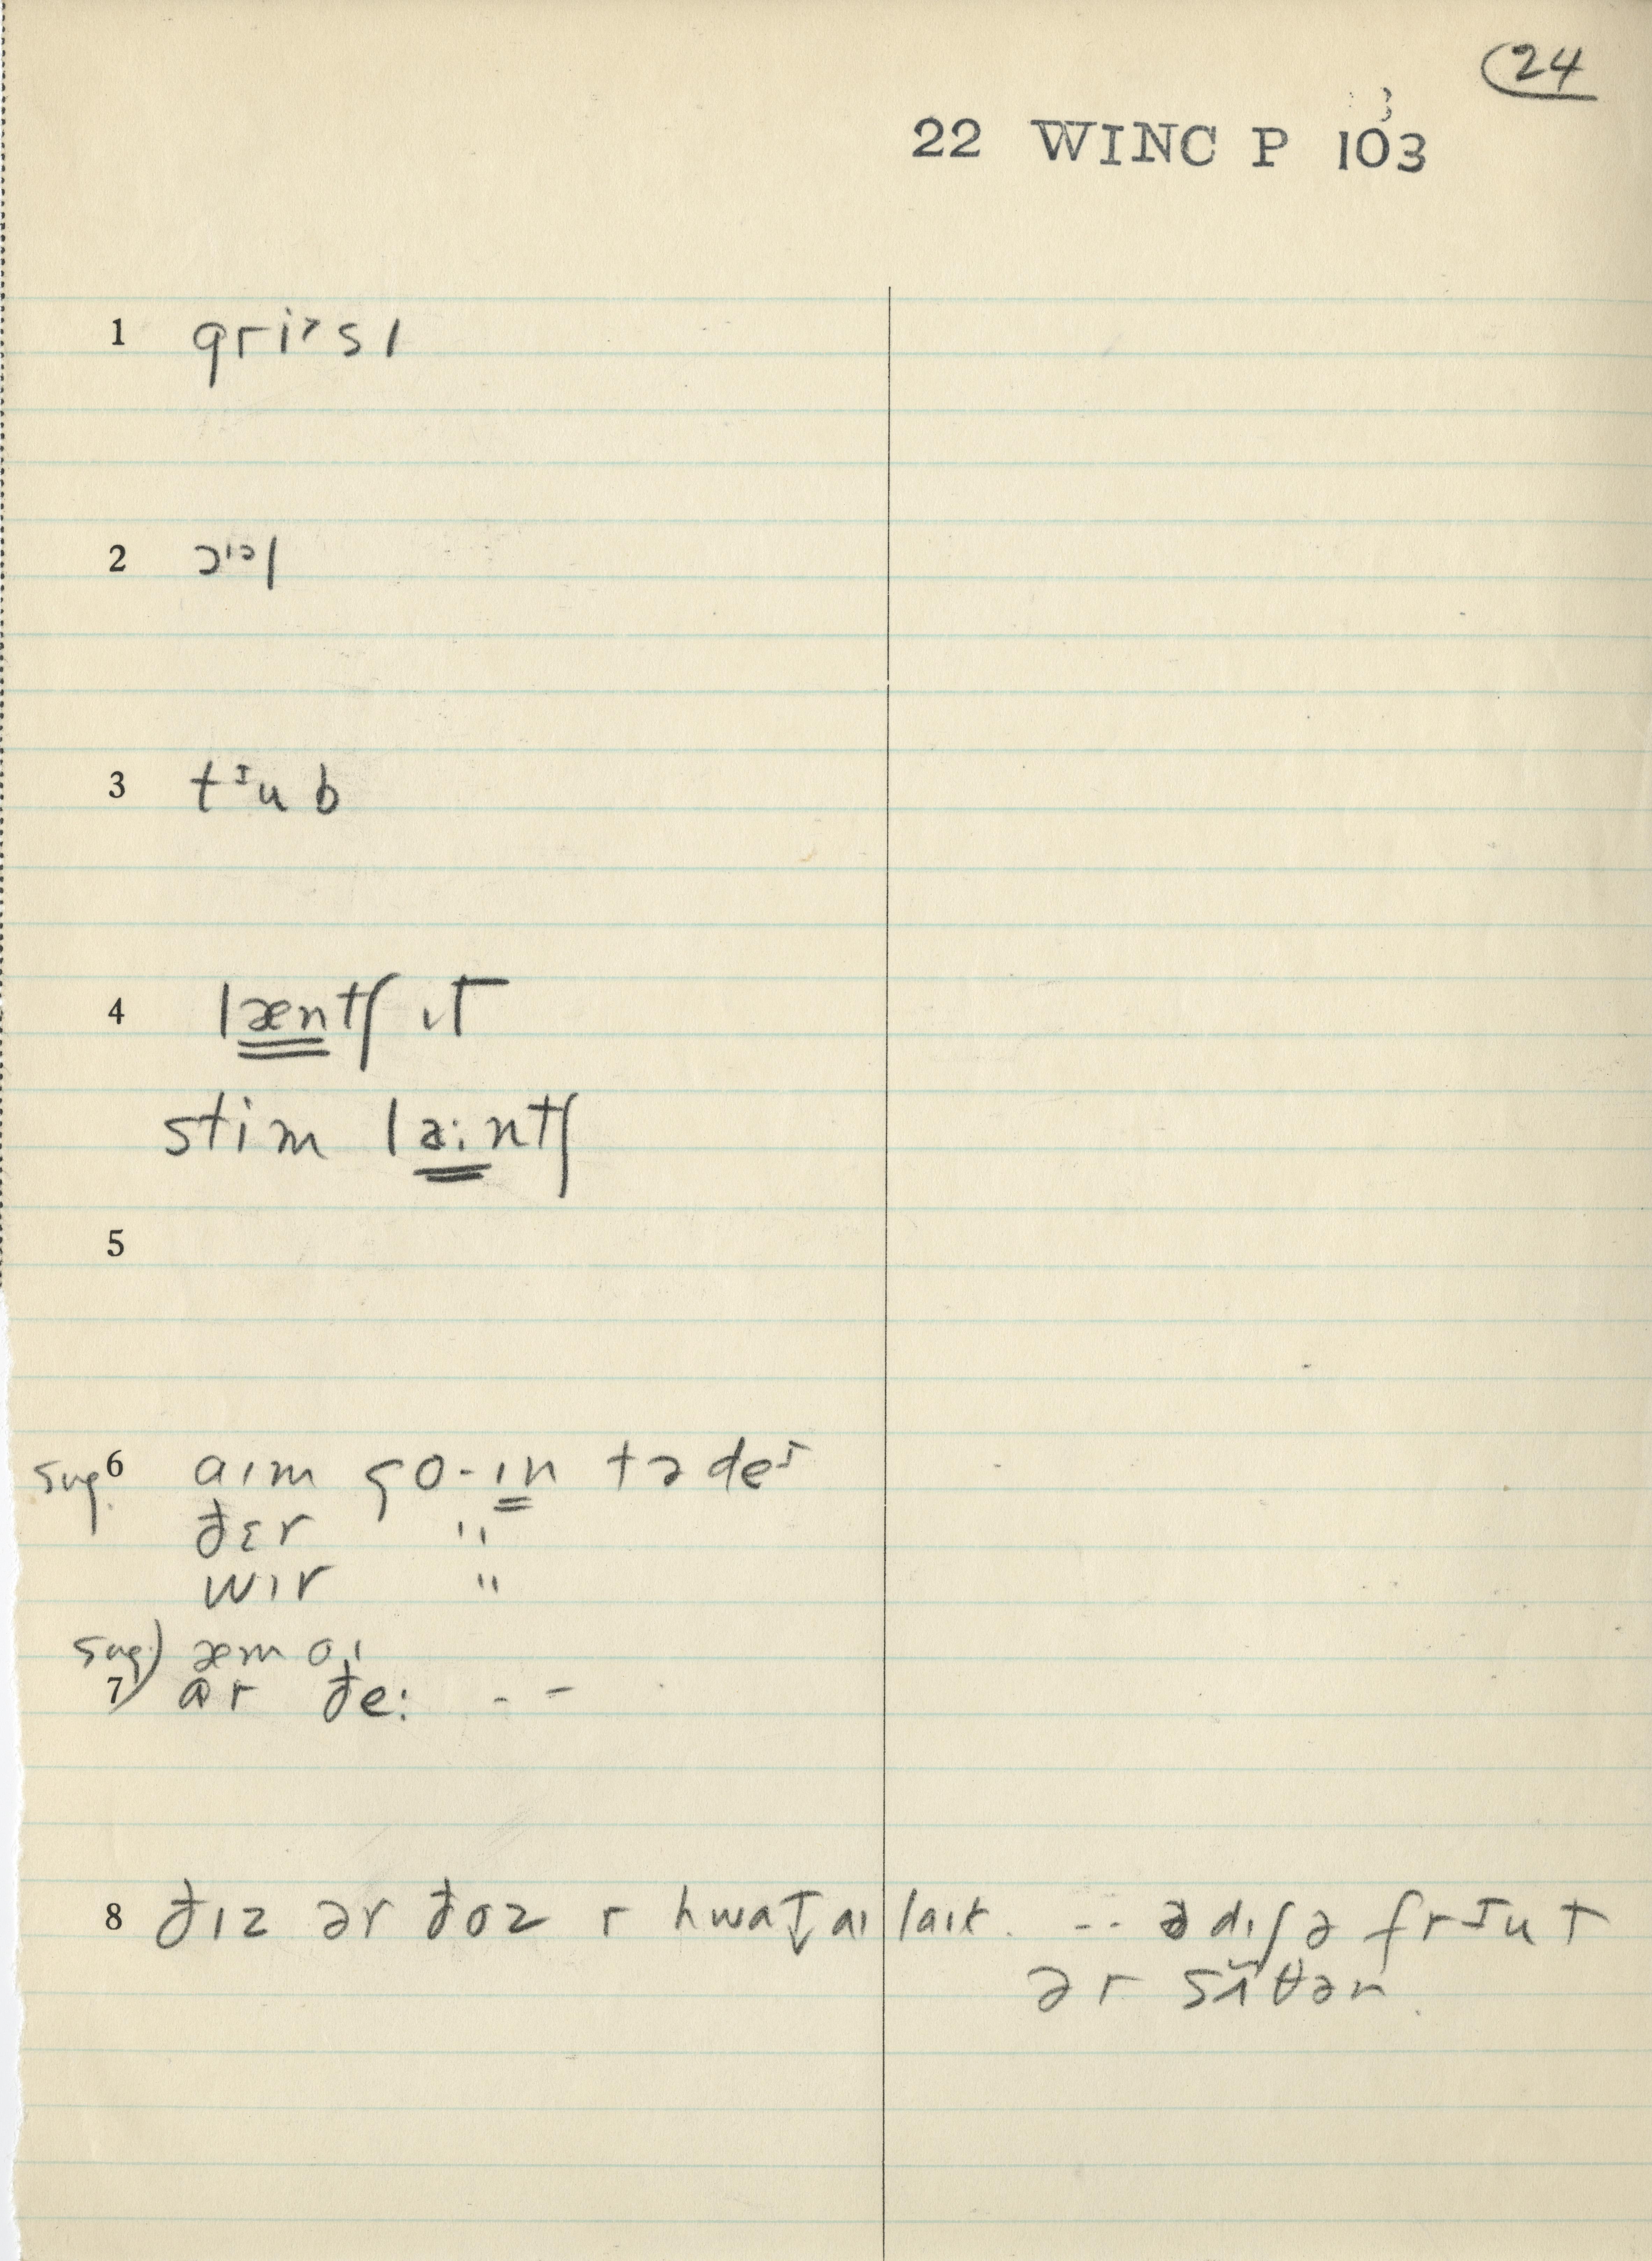 24
22 WINC P 103
3
1 griˀsɪ
2 ɔˡᵊl
3 tᶦub
4 læntʃ ɪt
stim la:ntʃ
5
sug. 6 aɪm go-ɪn tə deᶦ
ðɛr "
wɪr "
sug) æm aɪ
7 ar ðe: - -
8 ðɪz ər ðoz r hwat aɪ laɪk. -- ə dɪʃ ə frᶦut
ər sʌ̃θən.